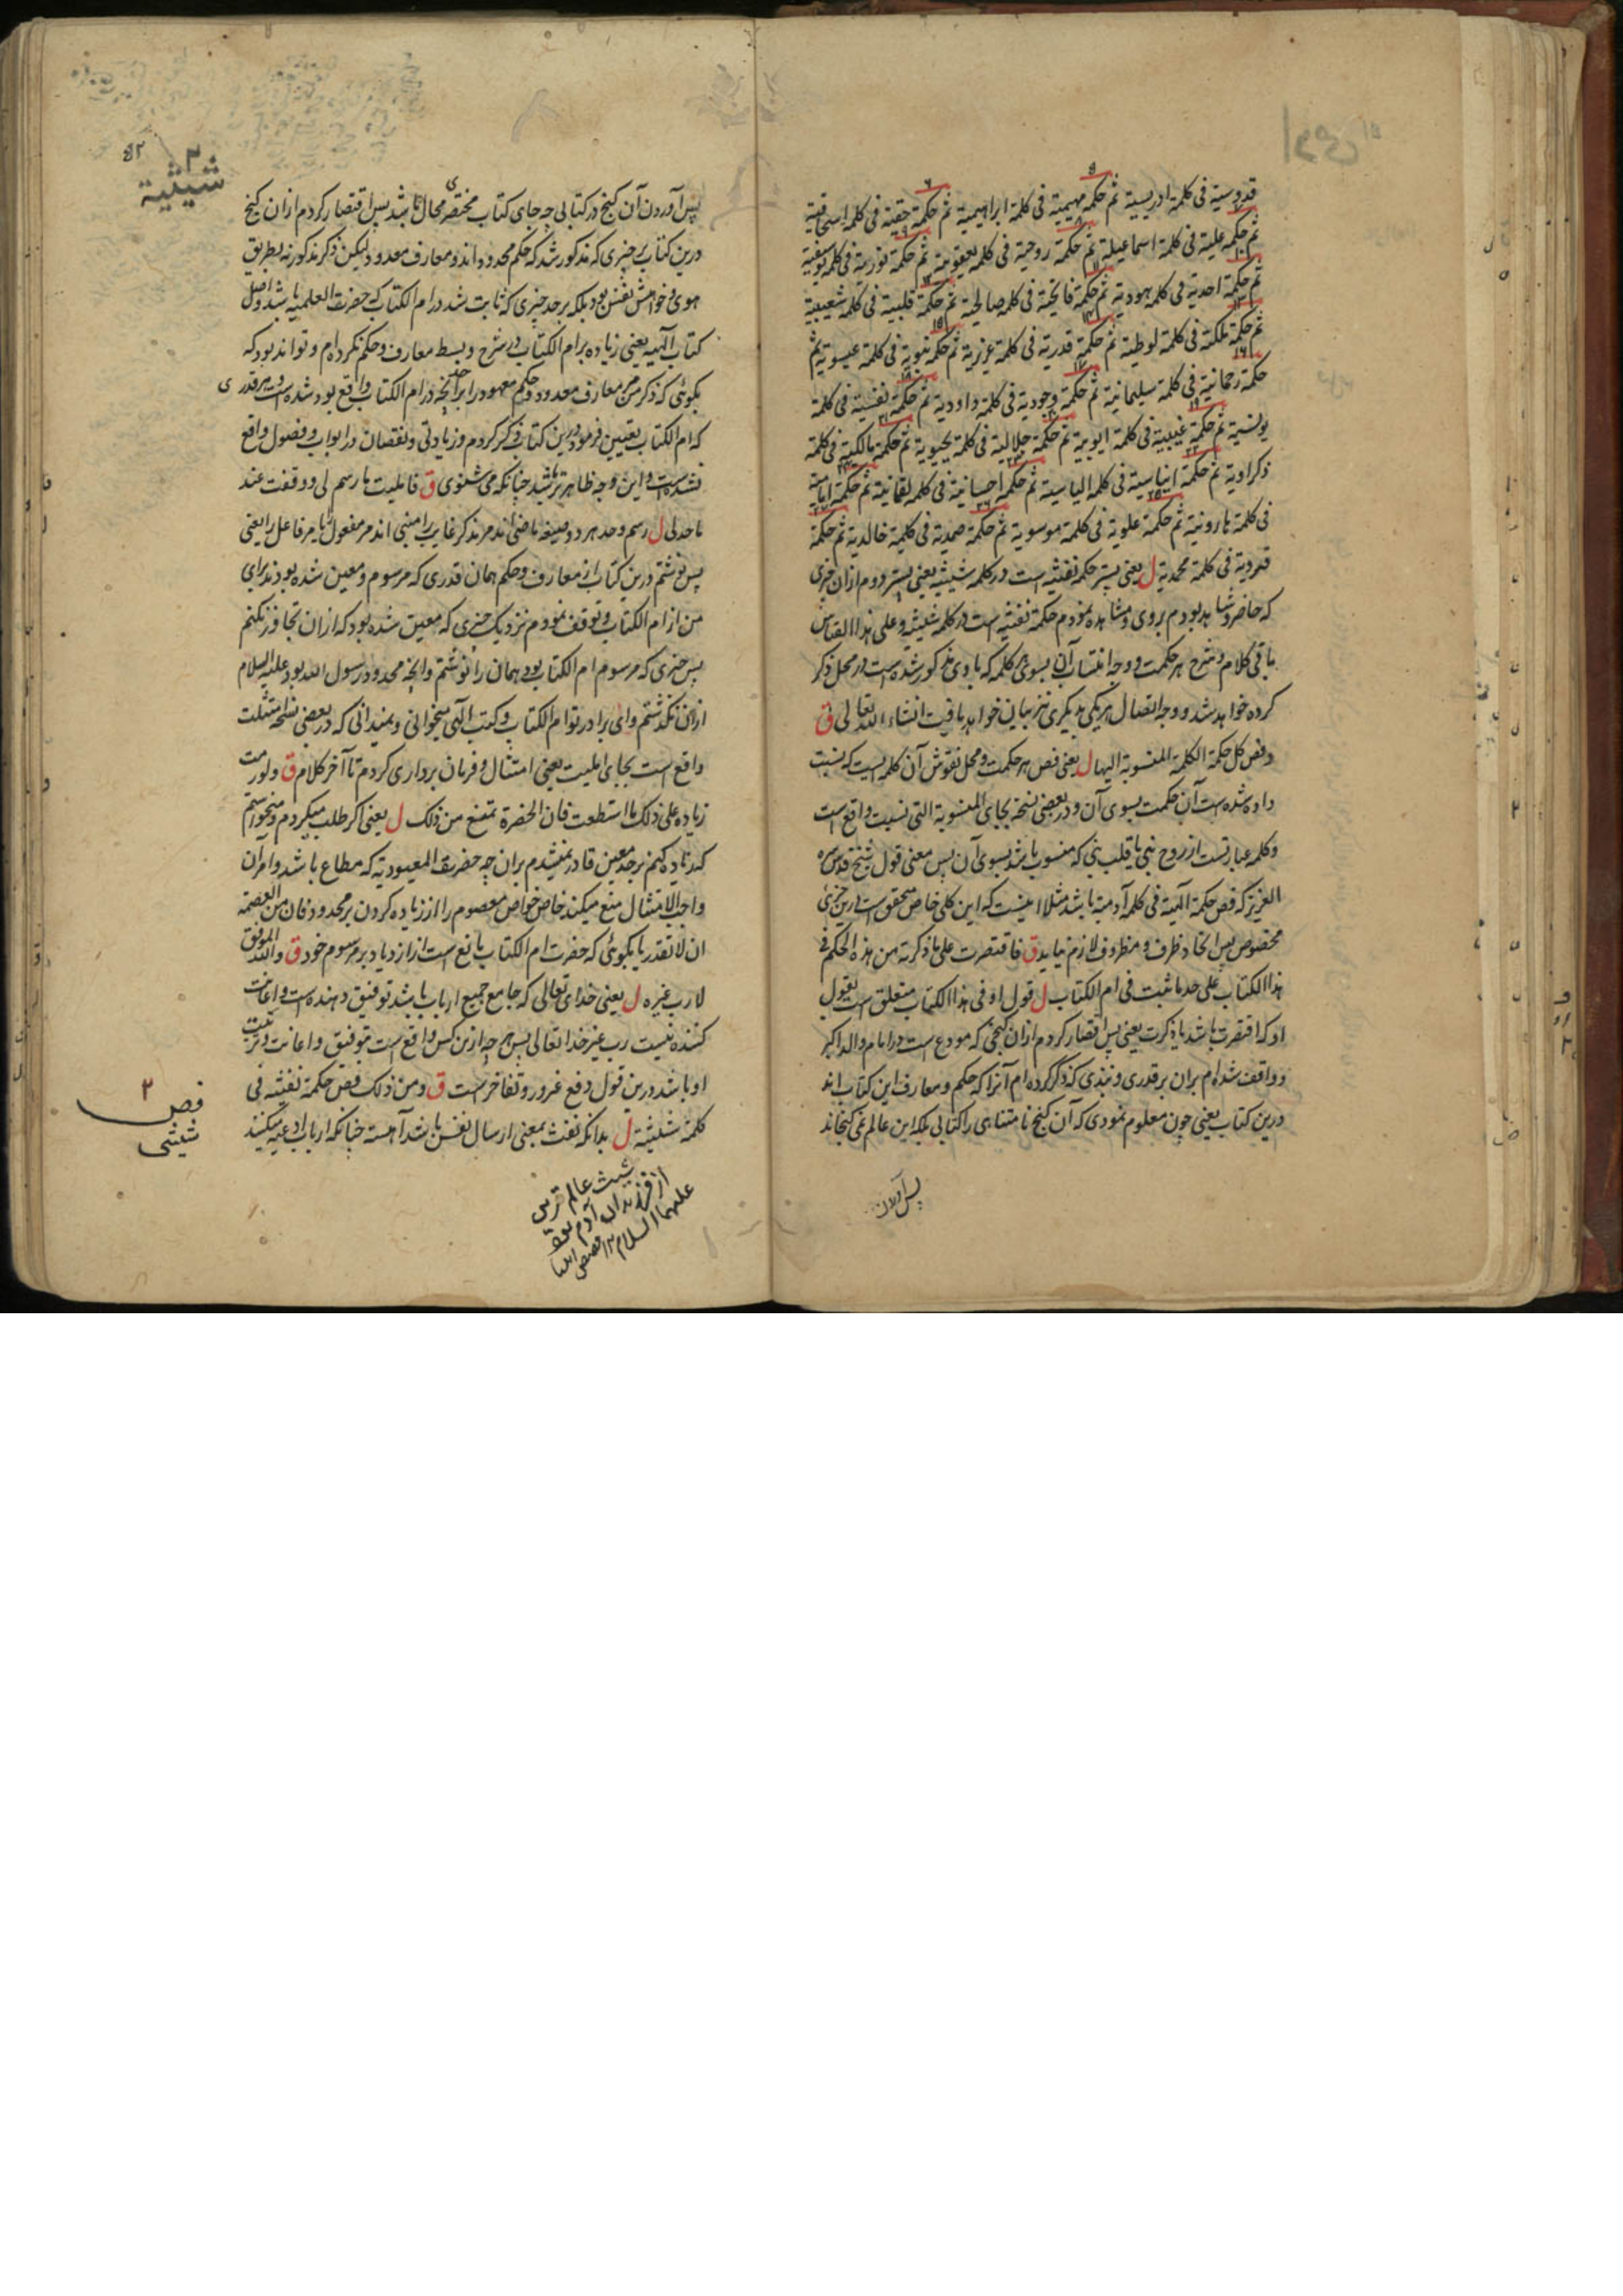 قدوسية فی کلمة ادریسیة ثم حکمة مهیمیة فی کلمة ابراهیمیة ثم حکمة حقیة فی کلمة اسحاقیة
ثم حکمة علیة فی کلمة اسماعیلیة ثم حکمة روحیة فی کلمه یعقوبیة ثم حکمة نوریة فی کلمه یوسفیة
ثم حکمة احدیة فی کلمه هودیة ثم حکمة فاتحیة فی کلمه صالحیة ثم حکمة قلبیة فی کلمة شعیبیة
ثم حکمة ملکیة فی کلمة لوطیة ثم حکمة قدریة فی کلمة عزیریة ثم حکمة نبویة فی کلمة عیسویة ثم
حکمة رحمانیة فی کلمة سلیمانیة ثم حکمة وجودیة فی کلمة داودیة ثم حکمة نفسیة فی کلمة
یونسیة ثم حکمة غیبیة فی کلمة ایوبیة ثم حکمة جلالیة فی کلمة یحیویة ثم حکمة مالکیة فی کلمة
ذکراویة ثم حکمة ایناسیة فی کلمه الیاسیة ثم حکمة احسانیة فی کلمه لقمانیة ثم حکمة امامیة
فی کلمة هارونیة ثم حکمة علویة فی کلمة موسویة ثم حکمة صمدیة فی کلمة خالدیة ثم حکمة
فردیة فی کلمة محمدیة ل یعنی پستر حکمة نفثیه است در کلمه شیثیه یعنی پستر دوم ازان چیزی
که حاضر و شاهد بودم بروی و مشاهده نمودم حکمة نفثیه است در کلمه شیثیه و علی هذا القیاس
باقی کلام و شرح هر حکمت و وجه انتساب آن بسوی هر کلمه که با وی مذکور شده است در محل ذکر
کرده خواهد شد و وجه اتصال هر یکی بدیگری نیز بیان خواهد یافت انشاء الله تعالی ق
و فص کل حکمة الکلمة المنسوبة الیها ل یعنی فص هر حکمت و محل نقوش آن کلمه ایست که نسبت
داده شده است آن حکمت بسوی آن و در بعضی نسخه بجای المنسوبة التی نسبت واقع است
و کلمه عبارتست از روح نبی یا قلب نبی که منسوب باشد بسوی آن پس معنی قول شیخ قدس سره
العزیز که فص حکمة الهیة فی کلمه آدمیة باشد مثلا اینست که این کلی خاص متحقق است درین جزئی
مخصوص پس اتحاد ظرف و مظروف لازم نیاید ق فاقتصرت علی ما ذکرته من هذه الحکم فی
هذا الکتاب علی حد ما ثبت فی ام الکتاب ل قول او فی هذا الکتاب متعلق است بقول
او که اقتصرت باشد یا ذکرت یعنی پس اقتصار کردم ازان گنجی که مودع است در امام والد اکبر
و واقف شده‌ام بران بر قدری و نبذی که ذکر کرده‌ام آنرا که حکم و معارف این کتاب اند
درین کتاب یعنی چون معلوم نمودی که آن گنج نامتناهی را کتابی بلکه این عالم نمی گنجاند
پس آوردن
۲
شیثیة
۴۲
پس آوردن آن گنج در کتابی چه جای کتاب مختصر محال باشد پس اقتصار کردم ازان گنج
درین کتاب بر چیزی که مذکور شد که حکم محدوده اند و معارف معدود ولیکن ذکر مذکور نه بطریق
هوی و خواهش نفس بود بلکه بر حد چیزی که ثابت شد در ام الکتاب که حضرت العلمیه باشد و اصل
کتاب الهیه یعنی زیاده بر ام الکتاب در شرح و بسط معارف و حکم نکرده‌ام و تواند بود که
بگوئی که ذکر من معارف معدود و حکم معهود را بر حد آنچه در ام الکتاب واقع بود شده است و هر قدری
که ام الکتاب تعیین فرمود درین کتاب ذکر کردم و زیادتی و نقصان در ابواب و فصول واقع
نشده است و این وجه ظاهر تر باشد چنانکه می شنوی ق فامتثلت ما رسم لی و وقفت عند
ما حد لی ل رسم و حد هر دو صیغه ماضی اند مر مذکر غایب را مبنی اند مر مفعول یا مر فاعل را یعنی
پس نوشتم درین کتاب از معارف و حکم همان قدری که مرسوم و معین شده بودند برای
من از ام الکتاب و توقف نمودم نزدیک چیزی که معین شده بود که ازان تجاوز نکنم
پس چیزی که مرسوم ام الکتاب بود همان را نوشتم و آنچه محدود رسول الله بود علیه السلام
ازان نگذشتم و ای برادر تو ام الکتاب و کتب الهی میخوانی و میدانی که در بعضی نسخه امتثلت
واقع است بجای املیت یعنی امتثال و فرمان برداری کردم تا آخر کلام ق و لو رمت
زیاده علی ذلک ما استطعت فان الحضرة تمنع من ذلک ل یعنی اگر طلب میکردم و میخواستم
که زیاده کنم بر حد معین قادر نمیشدم بران چه حضرت المعبودیة که مطاع باشد و امر آن
واجب الامتثال منع میکند خاص خواص معصوم را از زیاده کردن بر محدود فان من العصمة
ان لا تقدر یا بگوئی که حضرت ام الکتاب مانع است از ازدیاد بر مرسوم خود ق والله الموفق
لا رب غیره ل یعنی خدای تعالی که جامع جمیع ارباب باشد توفیق دهنده است و اعانت
کننده نیست رب غیر خدا تعالی پس هر چه ازین کس واقع است بتوفیق و اعانت و تربیت
او باشد درین قول دفع غرور و تفاخر است ق و من ذلک فص حکمة نفثیه فی
کلمة شیثیة ل بدانکه نفث بمعنی ارسال نفس باشد آهسته چنانکه ارباب ادعیه میکنند
فص ۲
شیثی
شیث عالم ترین
از فرزندان آدم بود
علیهما السلام ۱۲ قصص انبیا